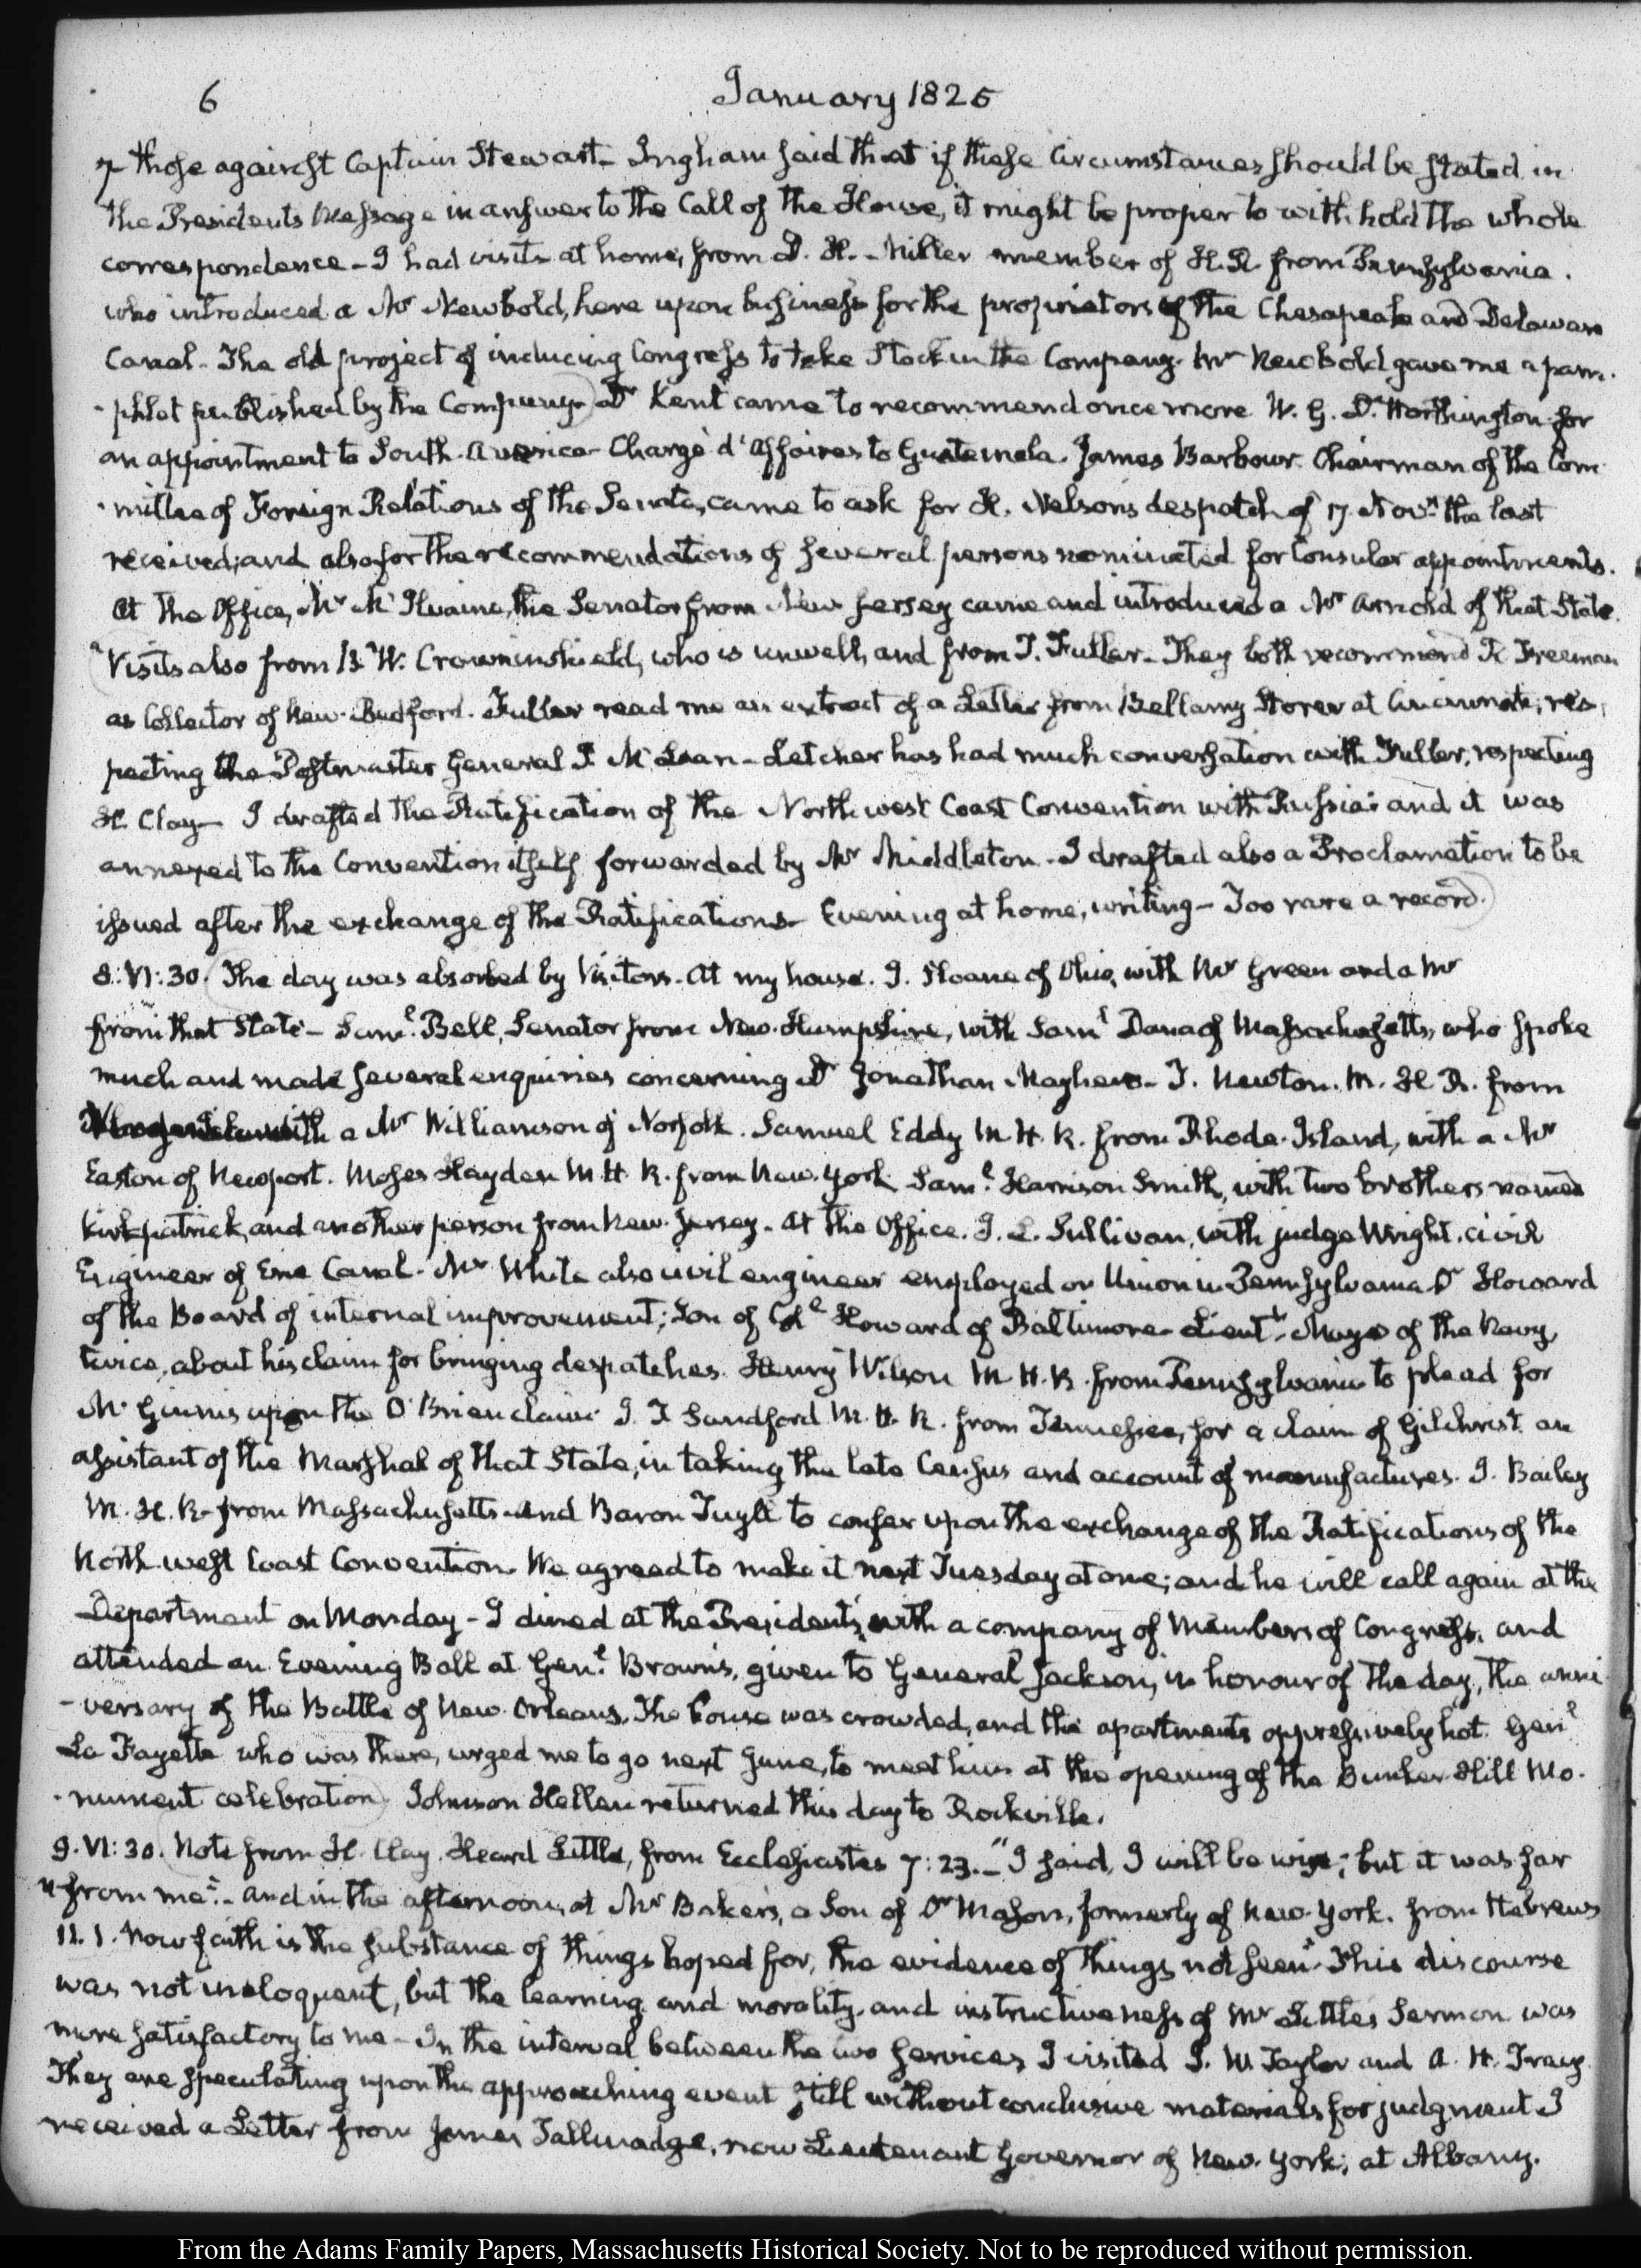 6
January 1825
7 those against Captain Stewart_ Ingham said that if these Circumstances should be stated in
the Presidents Message in answer to the Call of the House, it might be proper to withhold the whole
correspondence_ I had visits at home, from D. H. Miller member of H.R. from Pennsylvania.
who introduced a Mr Newbold, here upon business for the proprietors of the Chesapeake and Delaware
Canal_ The old project of inducing Congress to take Stock in the Company. Mr Newbold gave me a pam-
-phlet published by the Company_ Dr Kent came to recommend once more W. G. D. Worthington for
an appointment to South-America_ Chargé d'Affaires to Guatemala. James Barbour Chairman of the Com-
-mittee of Foreign Relations of the Senate, came to ask for H. Nelson's despatch of 17 Novr the last
received; and also for the recommendations of several persons nominated for Consular appointments.
At the Office, Mr McIlvaine, the Senator from New Jersey came and introduced a Mr Arnold of that State.
Visits also from B. W. Crowninshield, who is unwell, and from T. Fuller_ They both recommend Freeman
as Collector of New-Bedford. Fuller read me an extract of a Letter from Bellamy Storer at Cincinnati, res-
pecting the Postmaster General J. McLean_ Letcher has had much conversation with Fuller, respecting
H. Clay_ I drafted the Ratification of the North west Coast Convention with Russia: and it was
annexed to the Convention itself forwarded by Mr Middleton_ I drafted also a Proclamation to be
issued after the exchange of the Ratifications_ Evening at home, writing_ Too rare a record.
8. VI:30. The day was absorbed by Visitors_ At my house. J. Sloane of Ohio, with Mr Green and a Mr
from that State_ Saml Bell, Senator from New-Hampshire, with Saml Dana of Massachusetts, who spoke
much and made several enquiries concerning Dr Jonathan Mayhew_ T. Newton. M. H. R. from
with a Mr Williamson of Norfolk. Samuel Eddy M. H. R. from Rhode-Island, with a Mr
Easton of Newport. Moses Hayden M. H. R. from New-York Saml Harrison Smith, with two brothers named
Kirkpatrick, and another person from New-Jersey_ At the Office. J. L. Sullivan, with judge Wright, civil
Engineer of Erie Canal_ Mr White also civil engineer employed on Union in Pennsylvania_ Dr Howard
of the Board of internal improvement; Son of Coll Howard of Baltimore_ Lieutt Mayo of the Navy,
twice, about his claim for bringing despatches. Henry Wilson M. H. R. from Pennsylvania to plead for
McGinnis upon the O'Brien claim J. T. Sandford M. H. R. from Tennessee, for a claim of Gilchrist an
assistant of the Marshal of that State, in taking the late Census and account of manufactures. J. Bailey
M. H. R. from Massachusetts_ And Baron Tuyll to confer upon the exchange of the Ratifications of the
North-west Coast Convention. We agreed to make it next Tuesday at one; and he will call again at the
Department on Monday_ I dined at the President's, with a company of Members of Congress, and
attended an Evening Ball at Genl Brown's, given to General Jackson, in honour of the day, the anni-
-versary of the Battle of New-Orleans. The house was crowded, and the apartments oppressively hot. Genl
La Fayette who was there, urged me to go next June, to meet him at the opening of the Bunker-Hill Mo-
-nument celebration_ Johnson Hellen returned this day to Rockville.
9. VI:30. Note from H. Clay. Heard Little, from Ecclesiastes 7:23._ "I said, I will be wise; but it was far
"from me"._ And in the afternoon, at Mr Baker's, a Son of Dr Mason, formerly of New-York. from Hebrews
11. 1. Now faith is the substance of things hoped for, the evidence of things not seen" This discourse
was not ineloquent, but the learning, and morality, and instructiveness of Mr Little's Sermon was
more satisfactory to me_ In the interval between the two services I visited J. W. Taylor and A. H. Tracy.
They are speculating upon the approaching event still without conclusive materials for judgment_ I
received a Letter from James Tallmadge, now Lieutenant Governor of New-York, at Albany.
From the Adams Family Papers, Massachusetts Historical Society. Not to be reproduced without permission.